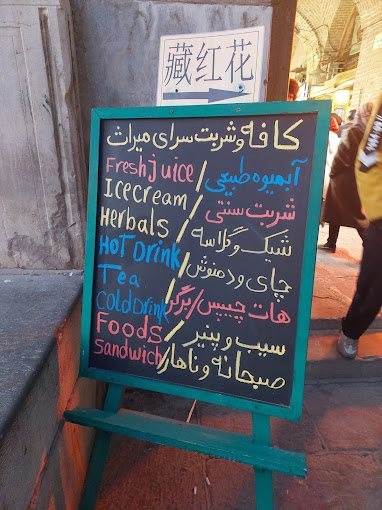 藏红花
کافه و شربت سرای میراث
Fresh juice / آبمیوه طبیعی
Icecream / شربت سنتی
Herbals / شیک و گلاسه
HOT DRINK / چای و دمنوش
Tea
COLD DRINK / هات چیپس / برگر
Foods / سیب و پنیر
Sandwich / صبحانه و ناهار